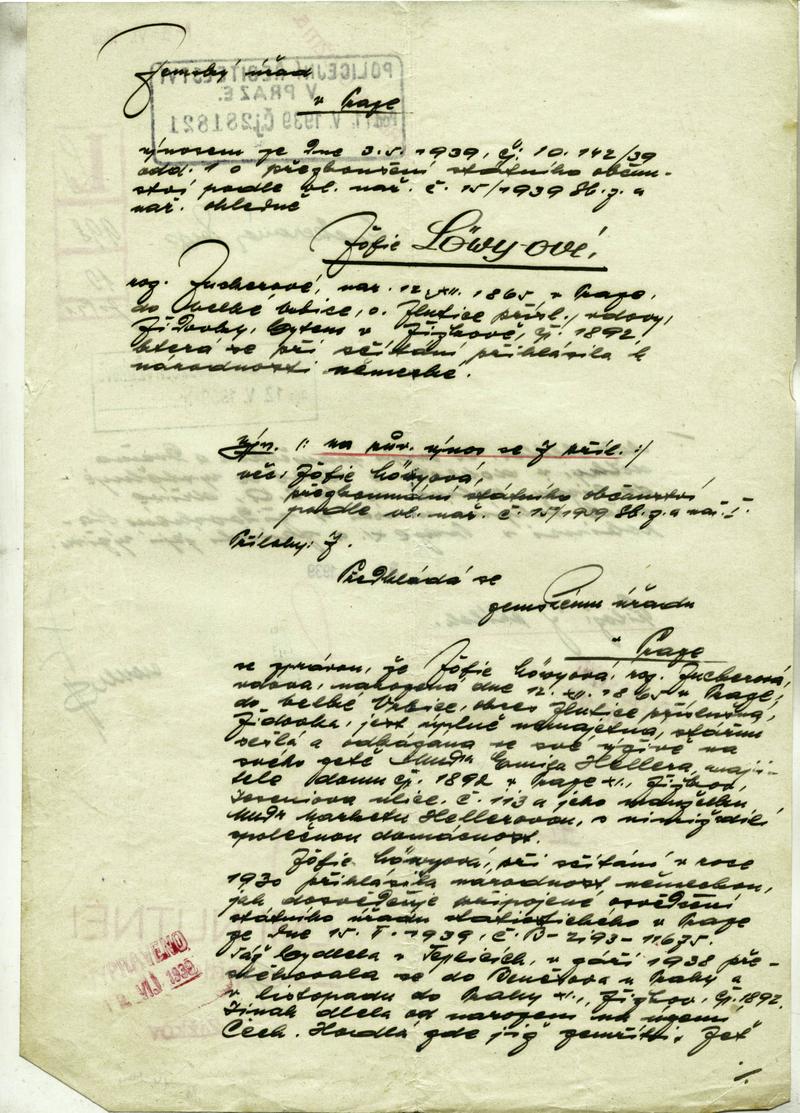 Zemský úřad
v Praze
výnosem ze dne 3.5. 1939, čj. 10.142/39
odd. 1 o přezkoušení státního občan-
ství podle vl. nař. č. 15/1939 Sb. z. a
nař. ohledně
Žofie Löwy-ové,
roz. Zucherové, nar. 12. XII. 1865 v Praze,
do Velké Vrbice, o. Žlutice přísl., vdovy,
Židovky, bytem v Žižkově, čp. 1892,
která se při sčítání přihlásila k
národnosti německé.
Vyř. /: na pův. výnos se 7 příl. :/
věc: Žofie Löwyová,
přezkoumání státního občanství
podle vl. nař. č. 15/1939 Sb. z. a nař. I.
Přílohy: 7.
Předkládá se
zemskému úřadu
v Praze
se zprávou, že Žofie Löwyová, roz. Zucherová,
vdova, narozená dne 12. XII. 1865 v Praze,
do Velké Vrbice, okres Žlutice příslušná,
Židovka, jest úplně nemajetná, stářím
sešlá a odkázána ve své výživě na
svého zetě Mudra Emila Hellera, maji-
tele domu čp. 1892 v Praze XI., Žižkov,
Jeseniova ulice č. 113 a jeho manželku
Mudr Marketu Hellerovou, s nimiž sdílí
společnou domácnost.
Žofie Löwyová, při sčítání v roce
1930 přihlásila národnost německou,
jak dosvědčuje připojené osvědčení
státního úřadu statistického v Praze
ze dne 15. V. 1939, č. B-2193-11675.
Táž bydlela v Teplicích, v září 1938 pře-
stěhovala se do Benešova u Prahy a
v listopadu do Prahy XI., Žižkov, čp. 1892.
Jinak dlela od narození na území
Čech. Hodlá zde již zemříti. Zeť
./.
POLICEJNÍ ŘEDITELSTVÍ
V PRAZE.
V. 1939 Čj 281821